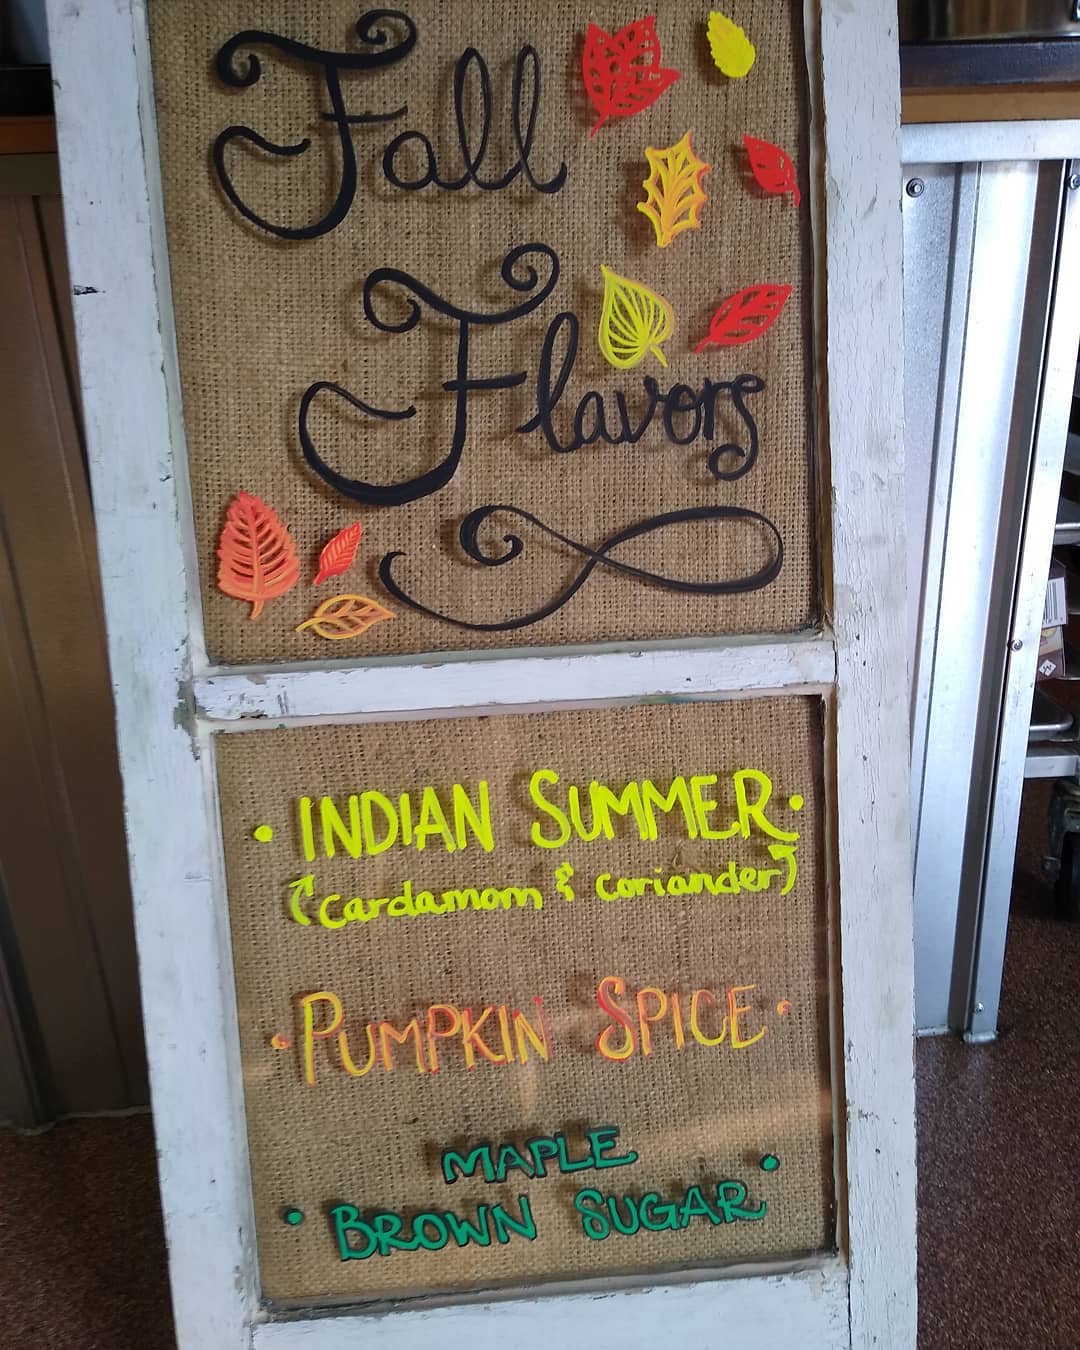 Fall
Flavors
• INDIAN SUMMER •
(Cardamom & Coriander)
• PUMPKIN SPICE •
MAPLE
• BROWN SUGAR •